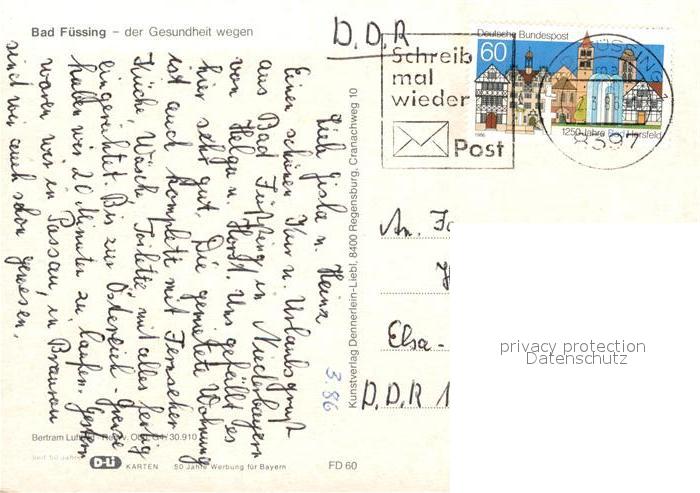 Bad Füssing – der Gesundheit wegen
D.D.R
Schreib
mal
wieder
Post
Deutsche Bundespost
60
1986
1250 Jahre Bad Hersfeld
FÜSSING
8397
Lieb Gisla u. Heinz
Einen schönen Kur u. Urlaubsgruß
aus Bad Füssing in Niederbayern
von Helga u. Horst. Uns gefällt es
hier sehr gut. Die gemietete Wohnung
ist auch komplett mit Fernseher
Küche, Wäsche Toilette mit alles fertig
eingerichtet. Bis zur Östereich-Grenze
haben wir 20 Minuten zu laufen. Gestern
waren wir in Passau, in Braunau
sind wir auch schon gewesen.
3.86
Kunstverlag Dennerlein-Liebl, 8400 Regensburg, Cranachweg 10
An. Fa
Elsa-
D.D.R 1
privacy protection
Datenschutz
Bertram Luftbild Reg. v. Obb. G4/30.910
seit 50 Jahre
D-Li KARTEN 50 Jahre Werbung für Bayern
FD 60